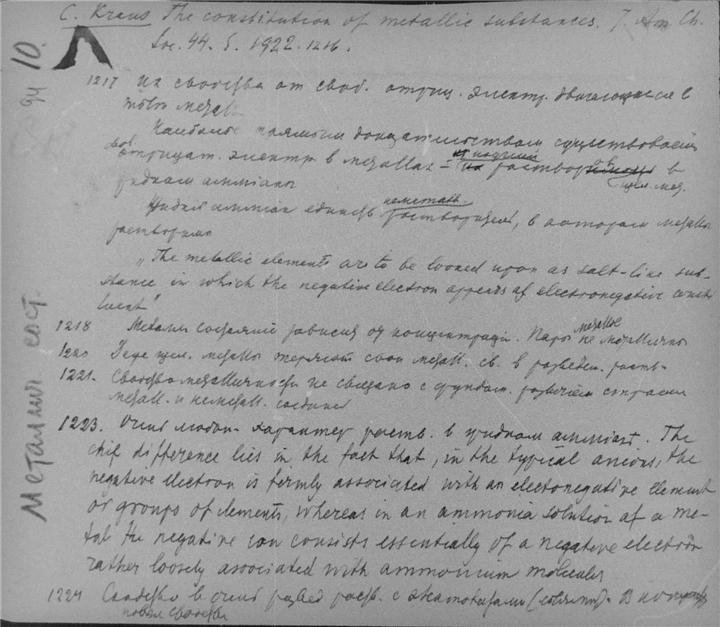 C. Kraus The constitution of metallic substances. J. Am. Ch.
Soc. 44. 5. 1922. 1216.
10.
94
Металлич. сост.
1217 от своб. отриц. электр. двигающихся в
Наиболее прямым доказательством существования
отрицат. электр. в металлах = раствор в
жидком аммиаке
Жидкий аммиак единств. неметалл. растворитель, в котором металлы
растворимы
„The metallic elements are to be looked upon as salt-like sub-
stance in which the negative electron appears as electronegative consti-
tuent"
1218 Металлич. состояние зависит от концентраций. Пары металлов не металличны
1220 щел. металлы теряют свои металл. св. в разведен. раств.
1221. Свойство металличности не связано с фундам. различием строения
металл. и неметалл. соедин.
1223. характер раств. в жидком аммиаке. The
chif difference lies in the fact that, in the typical anions, the
negative electron is firmly associated with an electronegative element
or groups of elements, whereas in an ammonia solution of a me-
tal the negative ion consists essentially of a negative electron
rather loosely associated with ammonium molecules
1224 Свойство в очень развед. раств. с